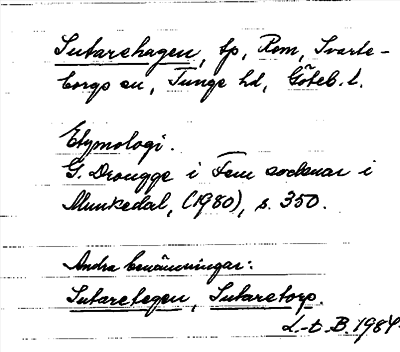 Sutarehagen, tp, Rom, Svarte-
borgs sn, Tunge hd, Göteb. l.
Etymologi.
G. Drougge i Fem socknar i
Munkedal, (1980), s. 350.
Andra benämningar:
Sutaretegen, Sutaretorp.
L.-E. B. 1984.